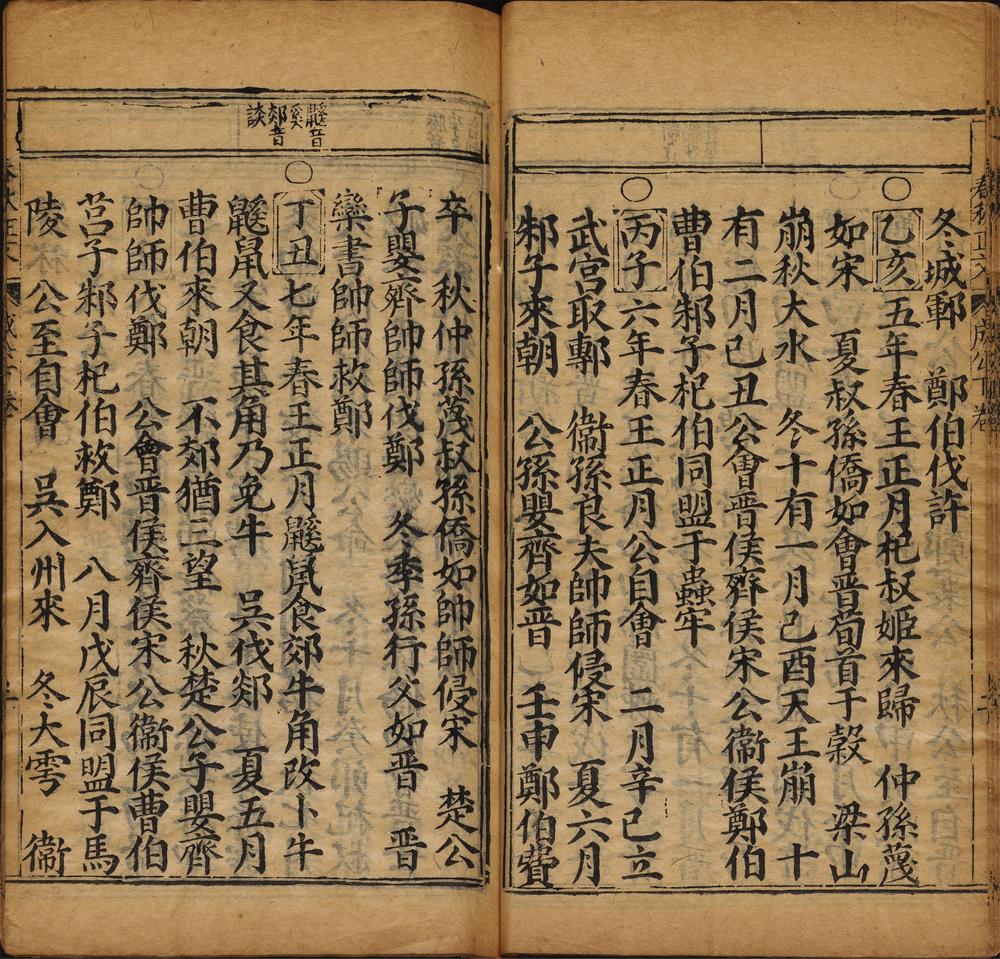 冬城鄆　鄭伯伐許
○乙亥五年春王正月杞叔姬來歸　仲孫蔑
如宋　夏叔孫僑如會晉荀首于穀　梁山
崩秋大水　冬十有一月己酉天王崩　十
有二月己丑公會晉侯齊侯宋公衞侯鄭伯
曹伯邾子杞伯同盟于蟲牢
○丙子六年春王正月公自會　二月辛巳立
武宮取鄟　衞孫良夫帥師侵宋　夏六月
邾子來朝　公孫嬰齊如晉　壬申鄭伯費
鼷音
奚
郯音
談
卒　秋仲孫蔑叔孫僑如帥師侵宋　楚公
子嬰齊帥師伐鄭　冬季孫行父如晉　晉
欒書帥師救鄭
○丁丑七年春王正月鼷鼠食郊牛角改卜牛
鼷鼠又食其角乃免牛　吳伐郯　夏五月
曹伯來朝　不郊猶三望　秋楚公子嬰齊
帥師伐鄭　公會晉侯齊侯宋公衞侯曹伯
莒子邾子杞伯救鄭　八月戊辰同盟于馬
陵　公至自會　吳入州來　冬大雩　衞